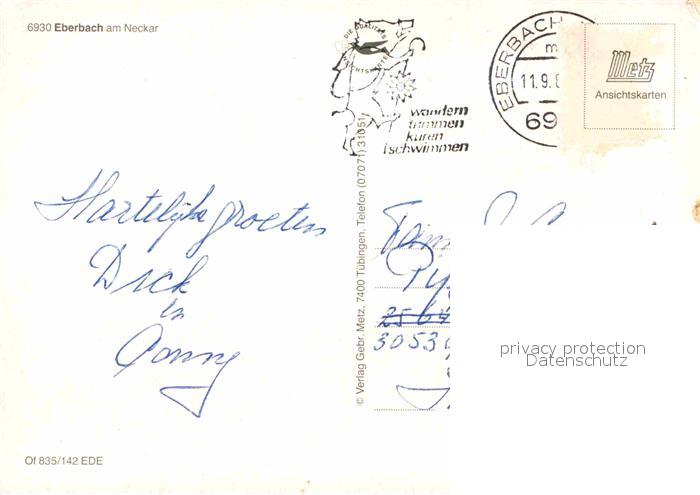 6930 Eberbach am Neckar
DIE QUALITÄTS
ANSICHTSKARTE
EBERBACH
11.9.8
69
wandern
trimmen
kuren
schwimmen
Metz
Ansichtskarten
Hartelijke groeten
Dick
en
Conny
© Verlag Gebr. Metz, 7400 Tübingen, Telefon (07071) 31051
Fam
3053
privacy protection
Datenschutz
Of 835/142 EDE